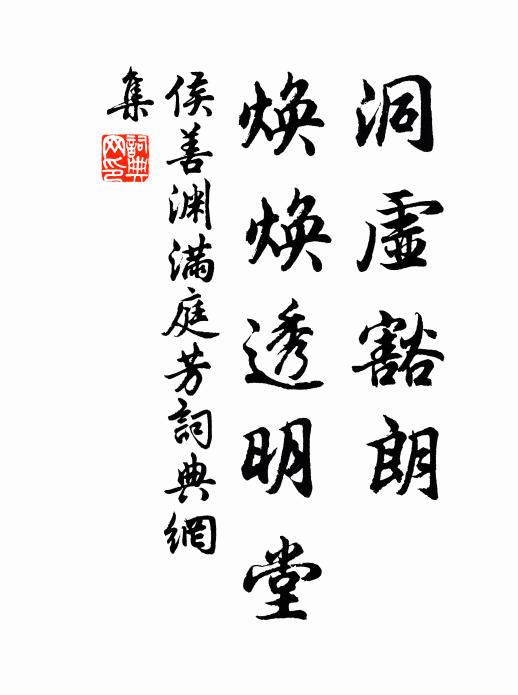 洞虛豁朗
煥煥透明堂
侯善淵滿庭芳詞典網
集
詞典
网印